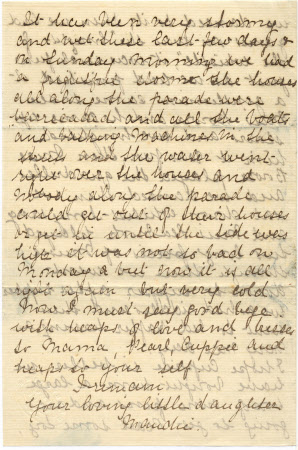 It has been very stormy
and wet these last few days &
on Sunday morning we had
a storm the houses
all along the parade were
barricaded and all the boats
and bathing machines in the
streets and the water went
right over the houses and
nobody along the parade
could get out of their houses
or get in until the tide was
high it was not so bad on
Monday & but now it is all
right again but very cold
Now I must say good bye
with heaps of love and kisses
to Mama, Pearl, and
heaps to your self
I remain
Your loving little daughter
Maudie